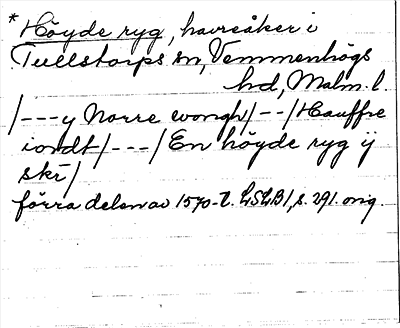 * Höyde ryg, havreåker i
Tullstorps sn, Vemmenhögs
hd, Malm. l.
/---y Norre wongh/--/Hauffre
iordt/---/En höyde ryg ij
skr/
förra delen av 1570-t. LSLB1, s. 291. orig.